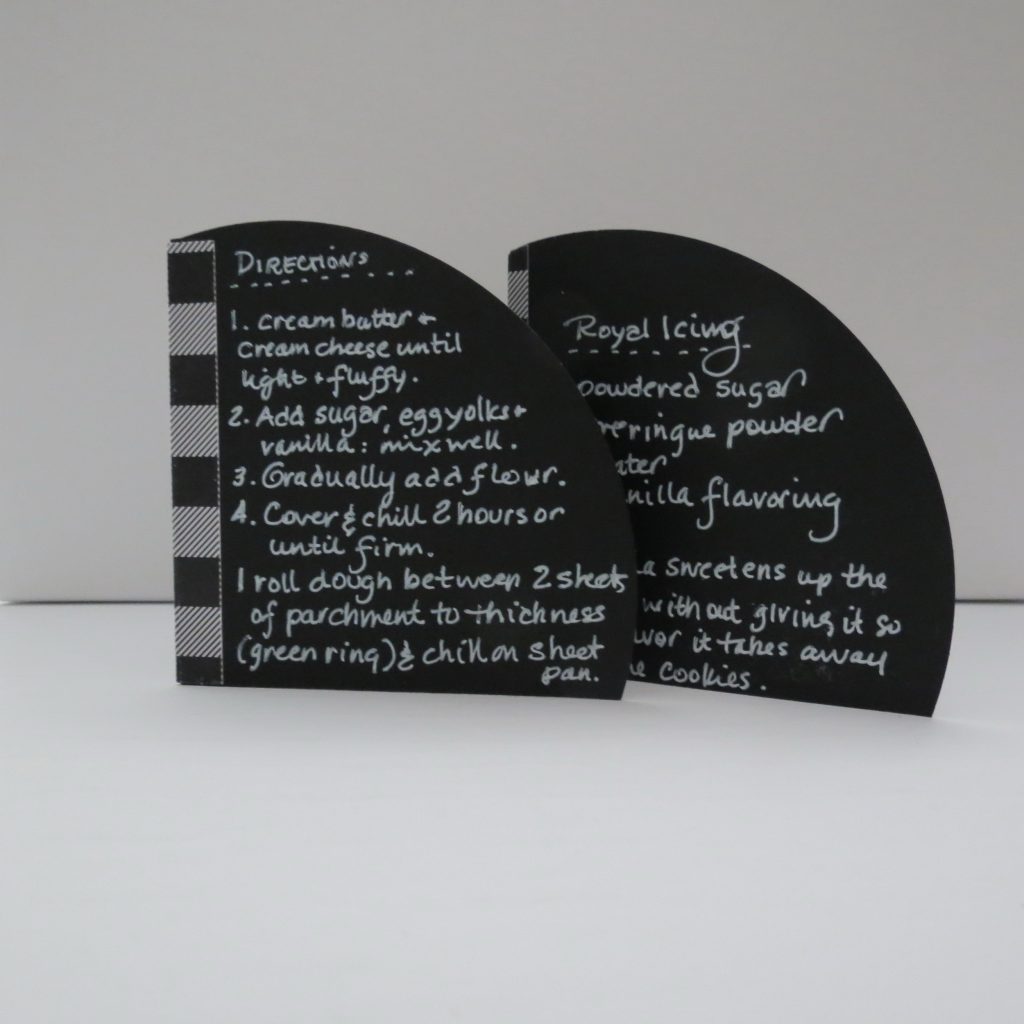 DIRECTIONS
1. cream butter +
cream cheese until
light + fluffy.
2. Add sugar, egg yolks +
vanilla: mix well.
3. Gradually add flour.
4. Cover & chill 2 hours or
until firm.
I roll dough between 2 sheets
of parchment to thickness
(green ring) & chill on sheet
pan.
Royal Icing
powdered sugar
meringue powder
ater
nilla flavoring
a sweetens up the
without giving it so
vor it takes away
cookies.